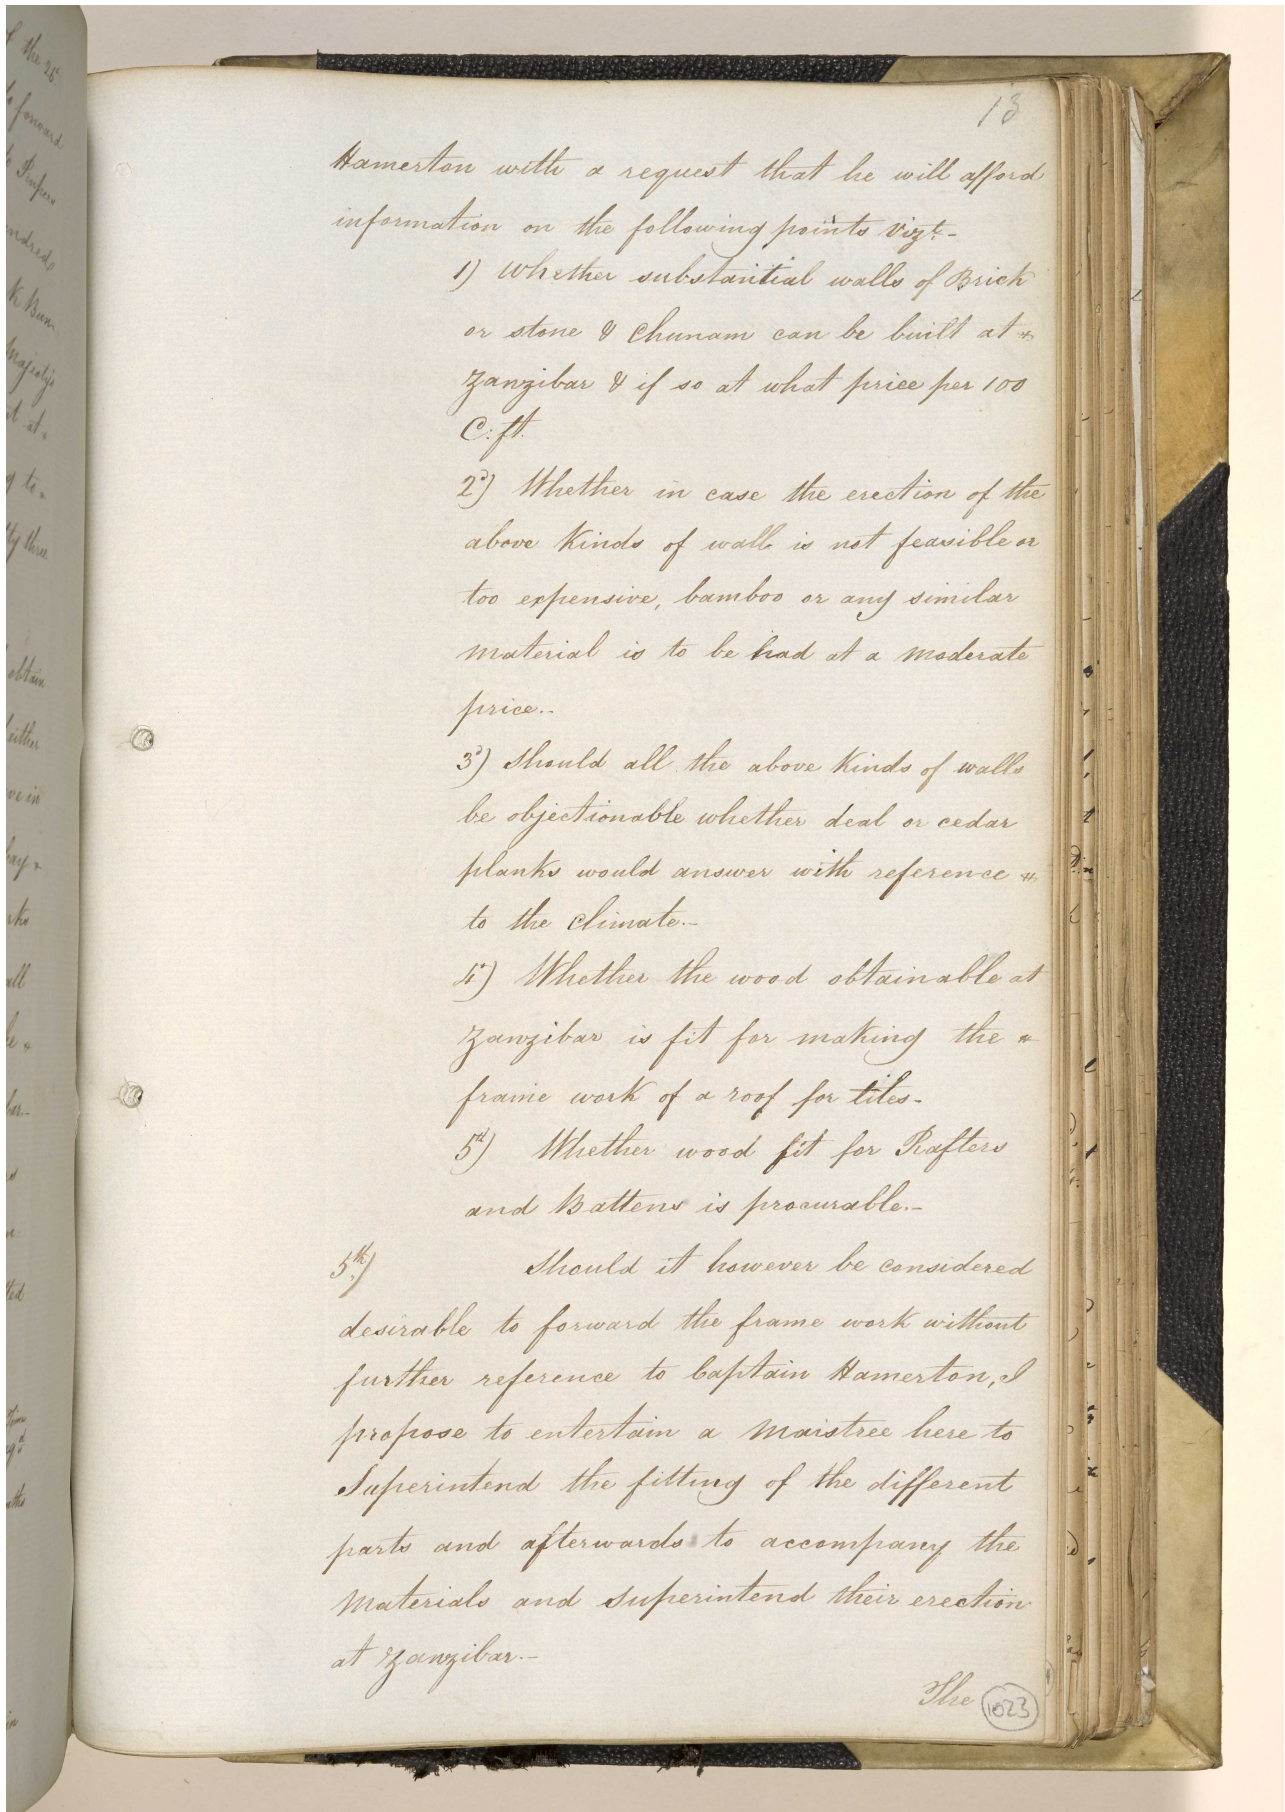 13
Hamerton with a request that he will afford
information on the following points Vizt.-
1) Whether substantial walls of Brick
or stone & Chunam can be built at
Zanzibar & if so at what price per 100
C: ft.
2d) Whether in case the erection of the
above Kinds of wall is not feasible or
too expensive, bamboo or any similar
material is to be had at a moderate
price.-
3d) Should all the above Kinds of walls
be objectionable whether deal or cedar
planks would answer with reference
to the Climate.-
4th) Whether the wood obtainable at
Zanzibar is fit for making the
frame work of a roof for tiles-
5th) Whether wood fit for Rafters
and Battens is procurable.-
5th) Should it however be considered
desirable to forward the frame work without
further reference to Captain Hamerton, I
propose to entertain a Maistree here to
Superintend the fitting of the different
parts and afterwards to accompany the
Materials and superintend their erection
at Zanzibar.-
The
1023